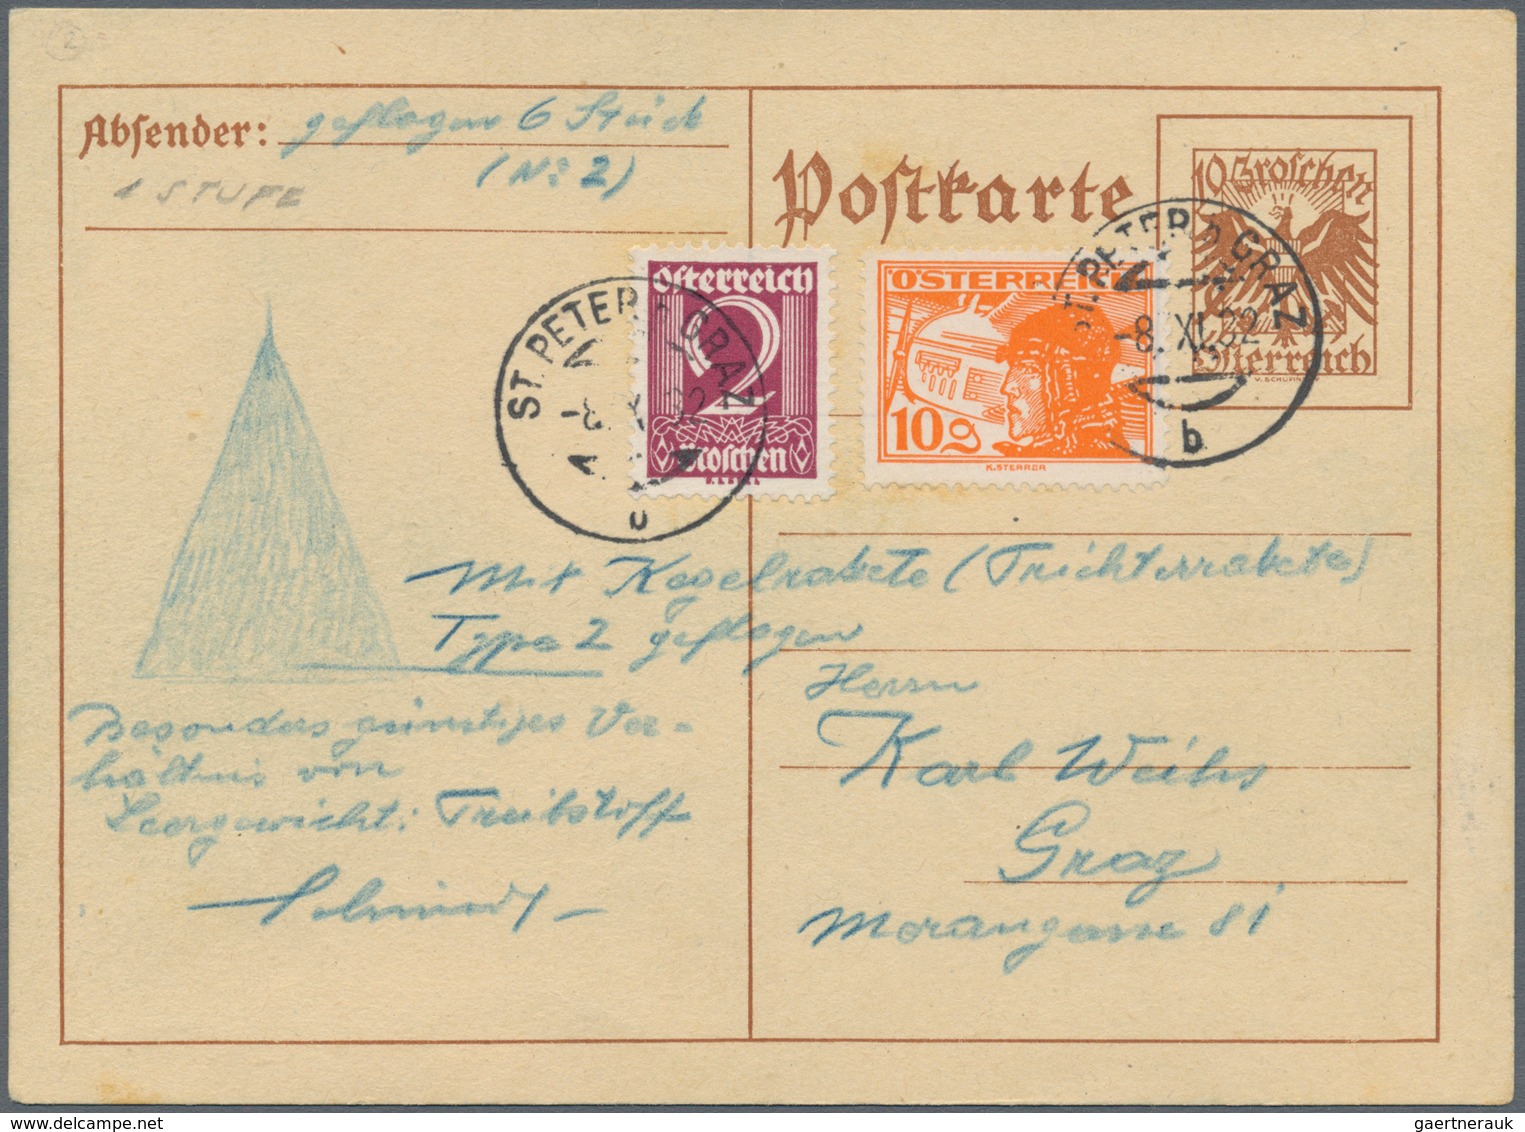 2
Absender: geflogen 6 Stück
(No 2)
1 STUFE
Postkarte
10 Groschen
Österreich
V. SCHUFINSKY
ST. PETER B. GRAZ
-8. XI. 32
b
Österreich
2
Groschen
ÖSTERREICH
10g
K. STERRER
ST. PETER B. GRAZ
-8. XI. 32
b
Mit Kegelrakete (Trichterrakete)
Type 2 geflogen
Besonders günstiges Ver-
hältnis von
Leergewicht: Treibstoff
Schmiedl
Herrn
Karl Weihs
Graz
Morangasse 81
gaertnerauk @ delcampe.net